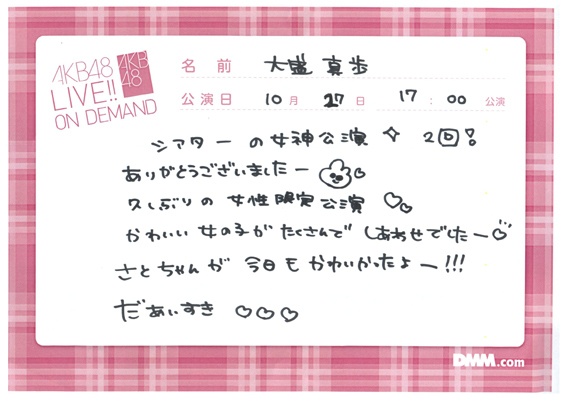 AKB48
LIVE!!
ON DEMAND
AKB
48
名 前 大盛 真歩
公演日 10月 27日 17:00 公演
シアターの女神公演 2回!
ありがとうございましたー
久しぶりの女性限定公演
かわいい女の子がたくさんで しあわせでしたー
さとちゃんが 今日もかわいかったよー!!!
だあいすき ♡♡♡
DMM.com